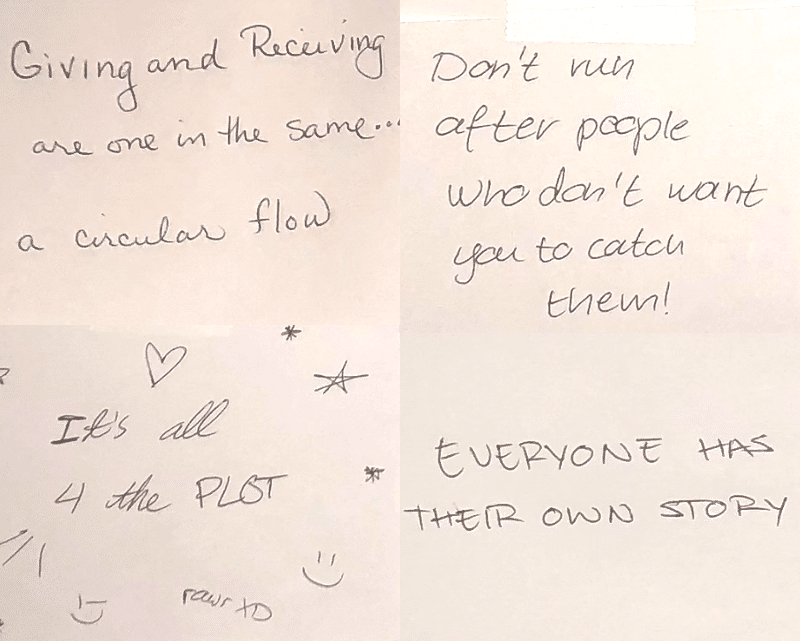 Giving and Receiving
are one in the same...
a circular flow
Don't run
after people
who don't want
you to catch
them!
It's all
4 the PLOT
rawr XD
EVERYONE HAS
THEIR OWN STORY